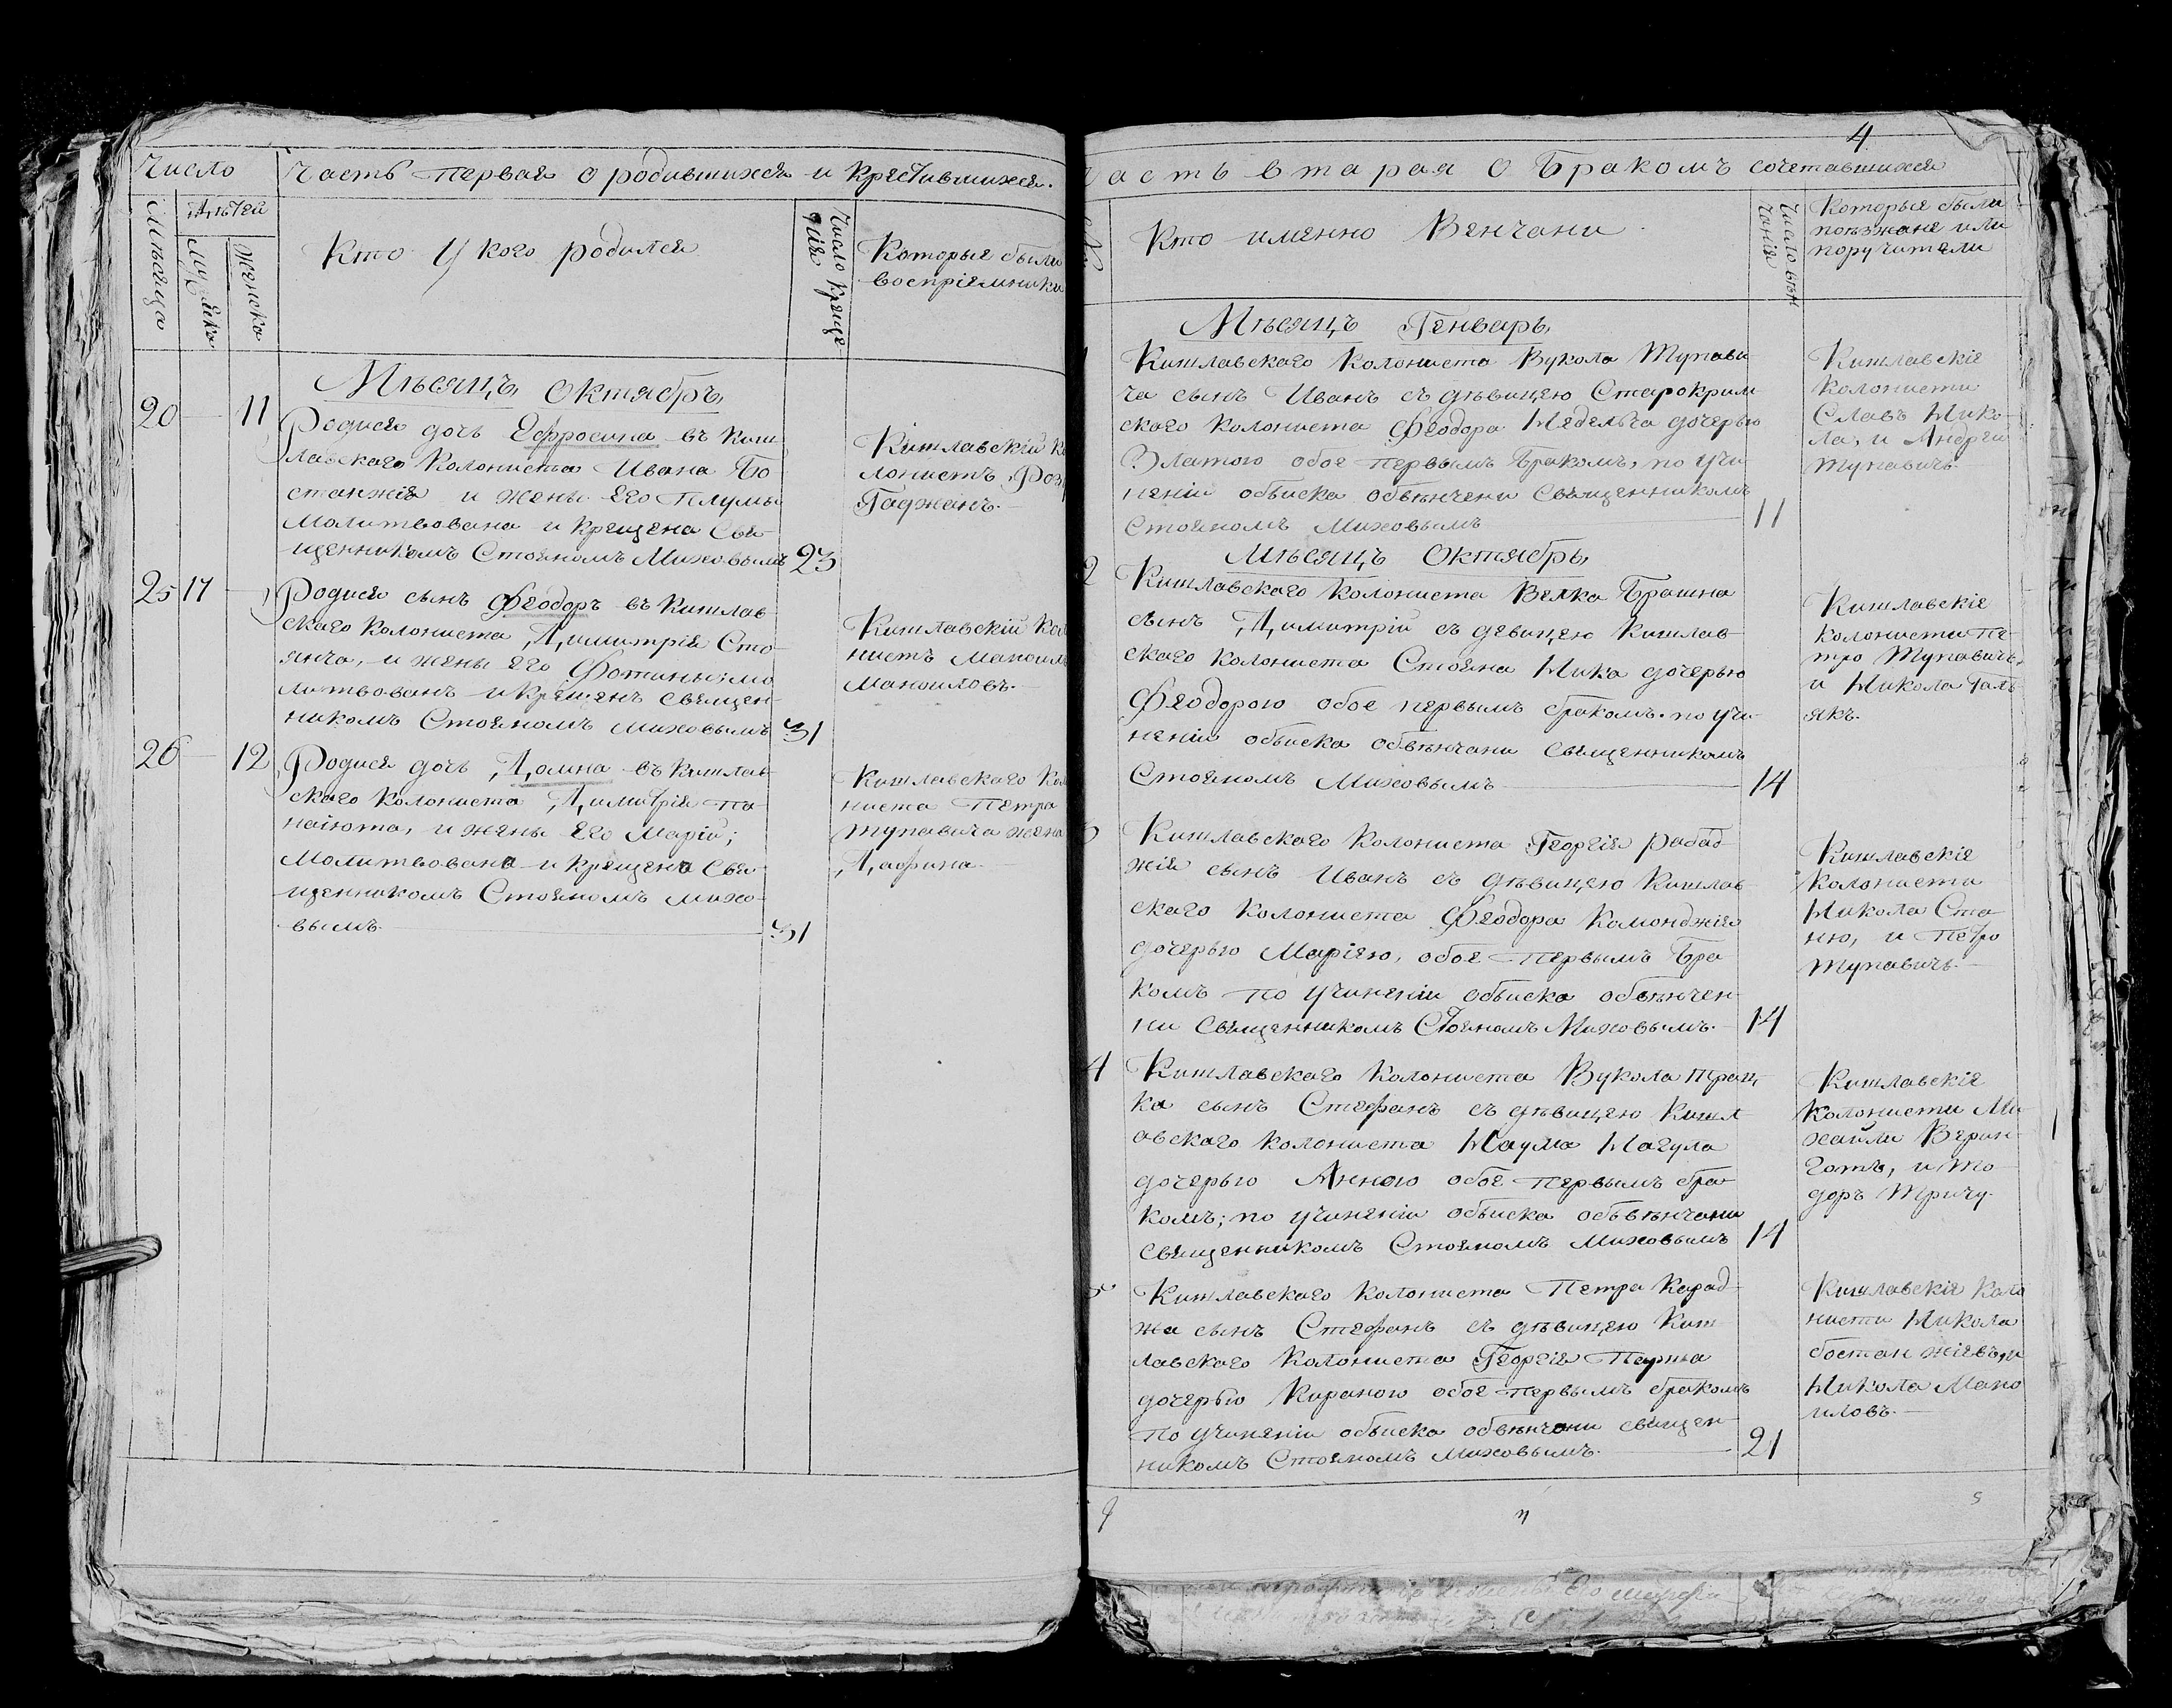 Число
Часть первая о родившихся и крестившихся.
Мѣсяца
Дѣтей
Мужска
Женска
Кто у кого родился
Число креще
нія
Которые были
воспріемники
Мѣсяцъ Октябрь
20 — 11
Родися дочь Ефросина въ Киш
лавскаго Колониста Ивана Бо
станжія и жены его Плумы
молитвована и крещена Свя
щенникомъ Стояномъ Миховымъ 23
Кишлавскій ко
лонистъ
Гаджанъ.
25 17 —
Родися сынъ Феодоръ въ Кишлав
скаго колониста Димитрія Сто
янча, и жены его Фотины; мо
литвованъ и крещенъ Священ
никомъ Стояномъ Миховымъ 31
Кишлавскій Коло
нистъ Маноилъ
Маноиловъ.
26 — 12
Родися дочь Домна въ Кишлав
скаго колониста Димитрія Па
наіота, и жены его Маріи;
Молитвована и крещена Свя
щенникомъ Стояномъ Михо
вымъ 31
Кишлавскаго Коло
ниста Петра
Тупавича жена
Дафина.
4
Часть вторая о Бракомъ сочетавшихся
№
Кто именно Венчани
Число вѣн
чанія
Которые были
поезжане или
поручители
Мѣсяцъ Генварь
Кишлавскаго Колониста Вукола Тупави
ча сынъ Иванъ съ дѣвицею Старокрим
скаго колониста Феодора Неделчa дочерью
Златою обое первымъ бракомъ, по учи
неніи обыска обвѣнчени Священникомъ
Стояномъ Миховымъ 11
Кишлавскіе
Колонисти
Славъ Нико
ла, и Андрей
Тупавичь.
Мѣсяцъ Октябрь
2
Кишлавскаго колониста Велка Брашна
сынъ Димитрій съ девицею Кишлав
скаго колониста Стояна Ника дочерью
Феодорою обое первымъ бракомъ. по учи
неніи обыска обвѣнчани Священникомъ
Стояномъ Миховымъ 14
Кишлавскіе
колонисти Пе
тро Тупавичь,
и Никола Галь
якъ.
Кишлавскаго Колониста Георгія Рабад
жія сынъ Иванъ съ дѣвицею Кишлав
скаго колониста Феодора Комонджія
дочерью Маріею, обое первымъ Бра
комъ по учиненіи обыска обвѣнчен
ни Священникомъ Стояномъ Миховымъ. 14
Кишлавскіе
колонисти
Никола Ста
ню, и Петро
Тупавичь.
4
Кишлавскаго колониста Вукола Транд
ка сынъ Стефанъ съ дѣвицею Кишл
авскаго колониста Наума Нагула
дочерью Анною обое первымъ бра
комъ; по учиненіи обыска обвѣнчани
Священникомъ Стояномъ Миховымъ 14
Кишлавскіе
колонисти Ми
хайли Верин
готъ, и То
доръ Тричу.
5
Кишлавскаго колониста Петра Карад
жа сынъ Стефанъ съ дѣвицею Киш
лавскаго колониста Георгія Перна
дочерью Кираною обое первымъ бракомъ
по учиненіи обыска обвѣнчани священ
никомъ Стояномъ Миховымъ. 21
Кишлавскіе Коло
нисти Никола
бостанжіевъ, и
Никола Мано
иловъ.